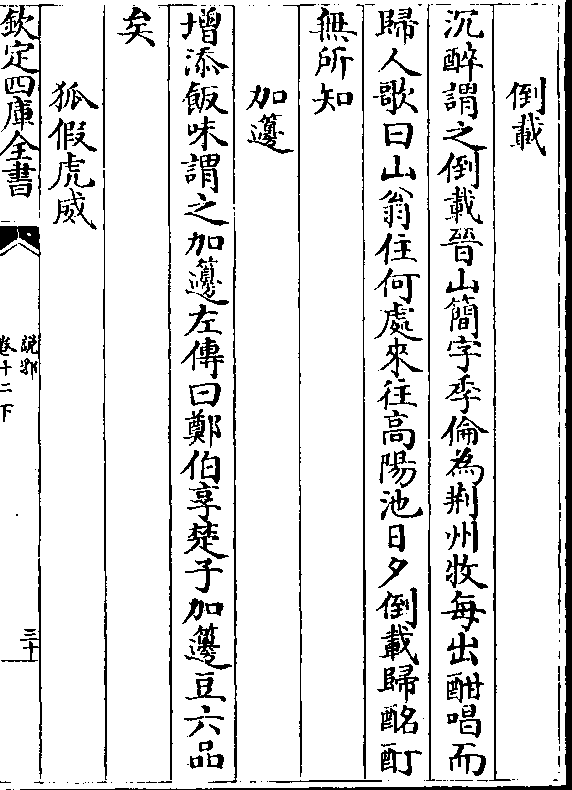 倒載
沉醉謂之倒載晉山簡字季倫為荆州牧每出酣唱而
歸人歌曰山翁住何處來往高陽池日夕倒載歸酩酊
無所知
加籩
增添飯味謂之加籩左傳曰鄭伯享楚子加籩豆六品
矣
狐假虎威
欽定四庫全書
說郛
卷十二下
三十